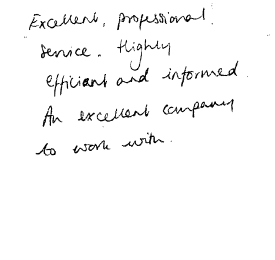 Excellent, professional.
service. Highly
efficient and informed.
An excellent company
to work with.